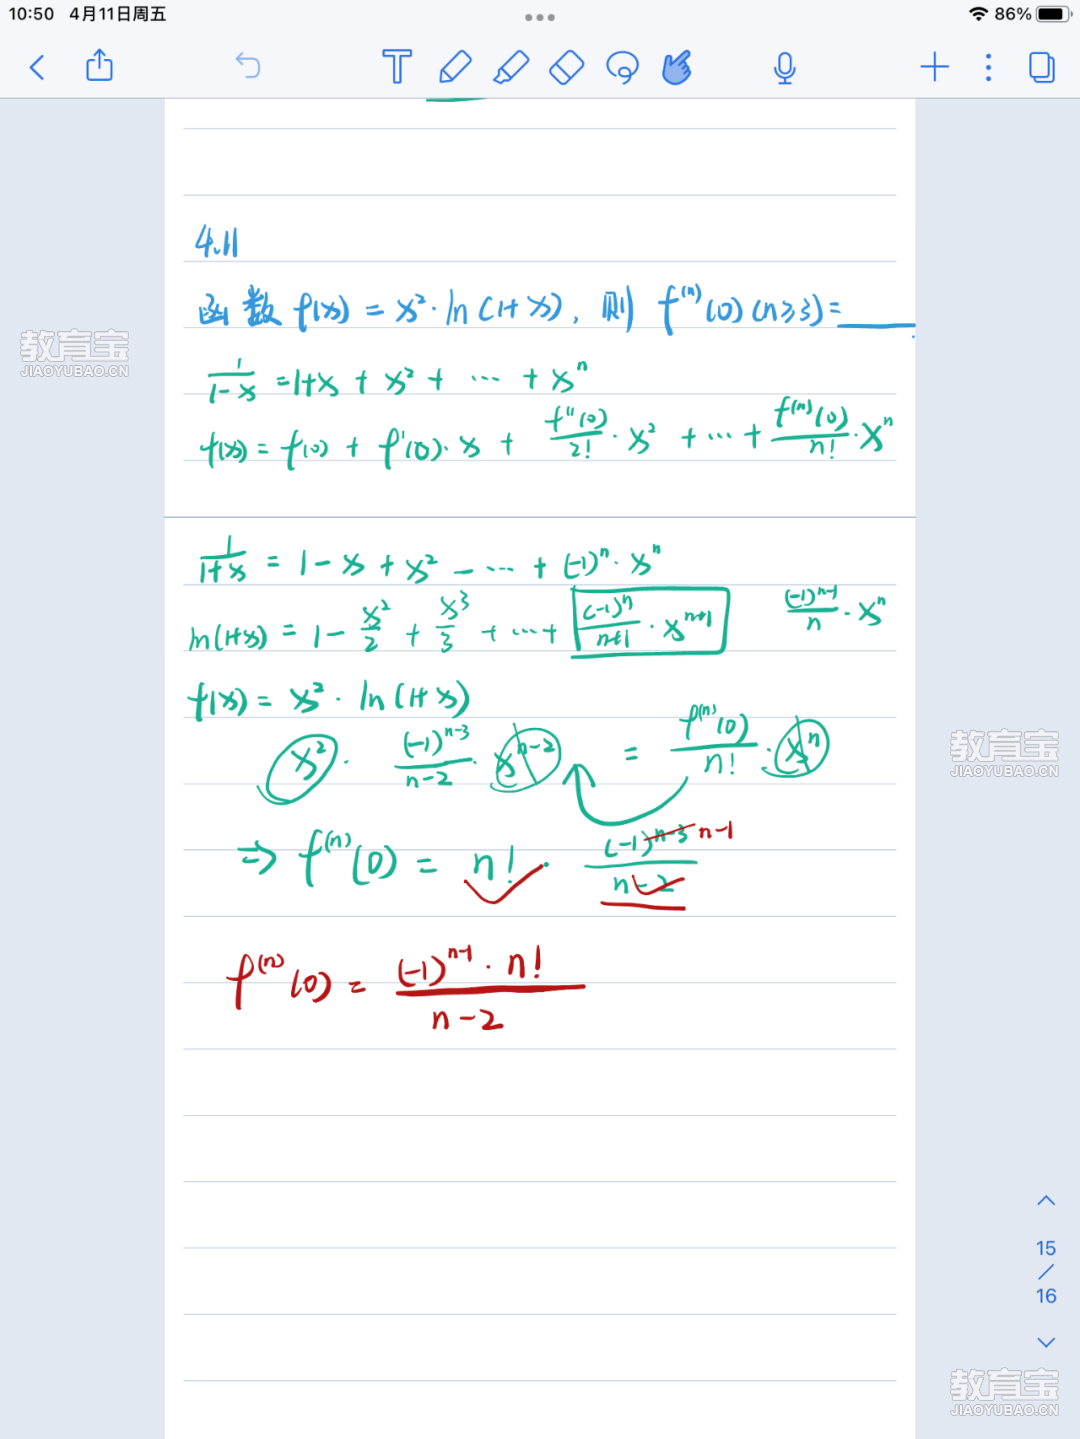 10:50 4月11日周五
86%
4.11
函数 f(x) = x²·ln(1+x), 则 f⁽ⁿ⁾(0)(n≥3)=____.
1/(1-x) = 1+x + x² + ⋯ + xⁿ
f(x) = f(0) + f'(0)·x + f''(0)/2!·x² + ⋯ + f⁽ⁿ⁾(0)/n!·xⁿ
1/(1+x) = 1 - x + x² - ⋯ + (-1)ⁿ·xⁿ
ln(1+x) = 1 - x²/2 + x³/3 + ⋯ + (-1)ⁿ/(n+1)·xⁿ⁺¹ (-1)ⁿ⁻¹/n·xⁿ
f(x) = x²·ln(1+x)
x²·(-1)ⁿ⁻³/(n-2)·xⁿ⁻² = f⁽ⁿ⁾(0)/n!·xⁿ
⇒ f⁽ⁿ⁾(0) = n!·(-1)ⁿ⁻³/(n-2) n-1
f⁽ⁿ⁾(0) = (-1)ⁿ⁻¹·n!/(n-2)
15
/
16
教育宝
JIAOYUBAO.CN
教育宝
JIAOYUBAO.CN
教育宝
JIAOYUBAO.CN